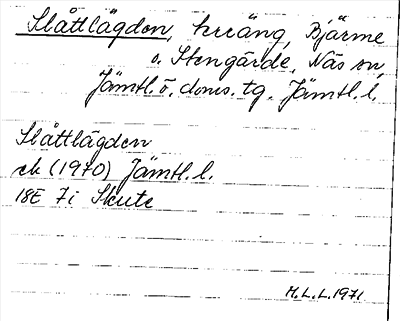 Slåttlägden, hräng, Bjärme
o. Stengärde, Näs sn,
Jämtl. ö. doms. tg. Jämtl. l.
Slåttlägden
ek (1970) Jämtl. l.
18E 7i Skute
M.L.L. 1971